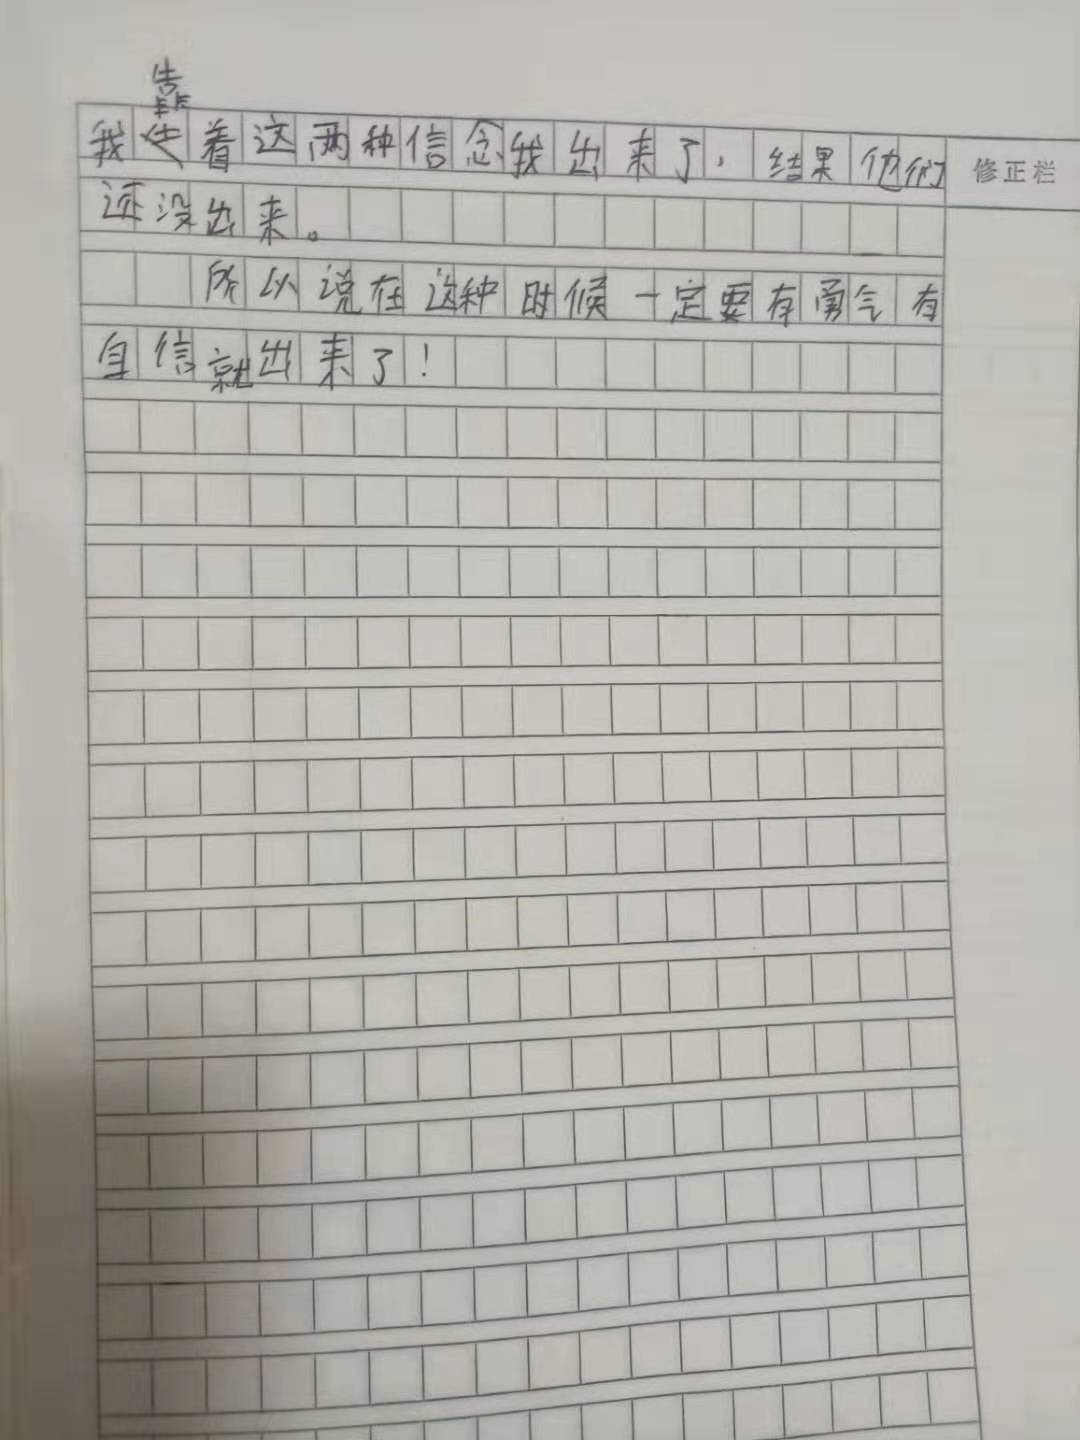 我靠着这两种信念我出来了，结果他们
还没出来。
所以说在这种时候一定要有勇气有
自信就出来了！
修正栏